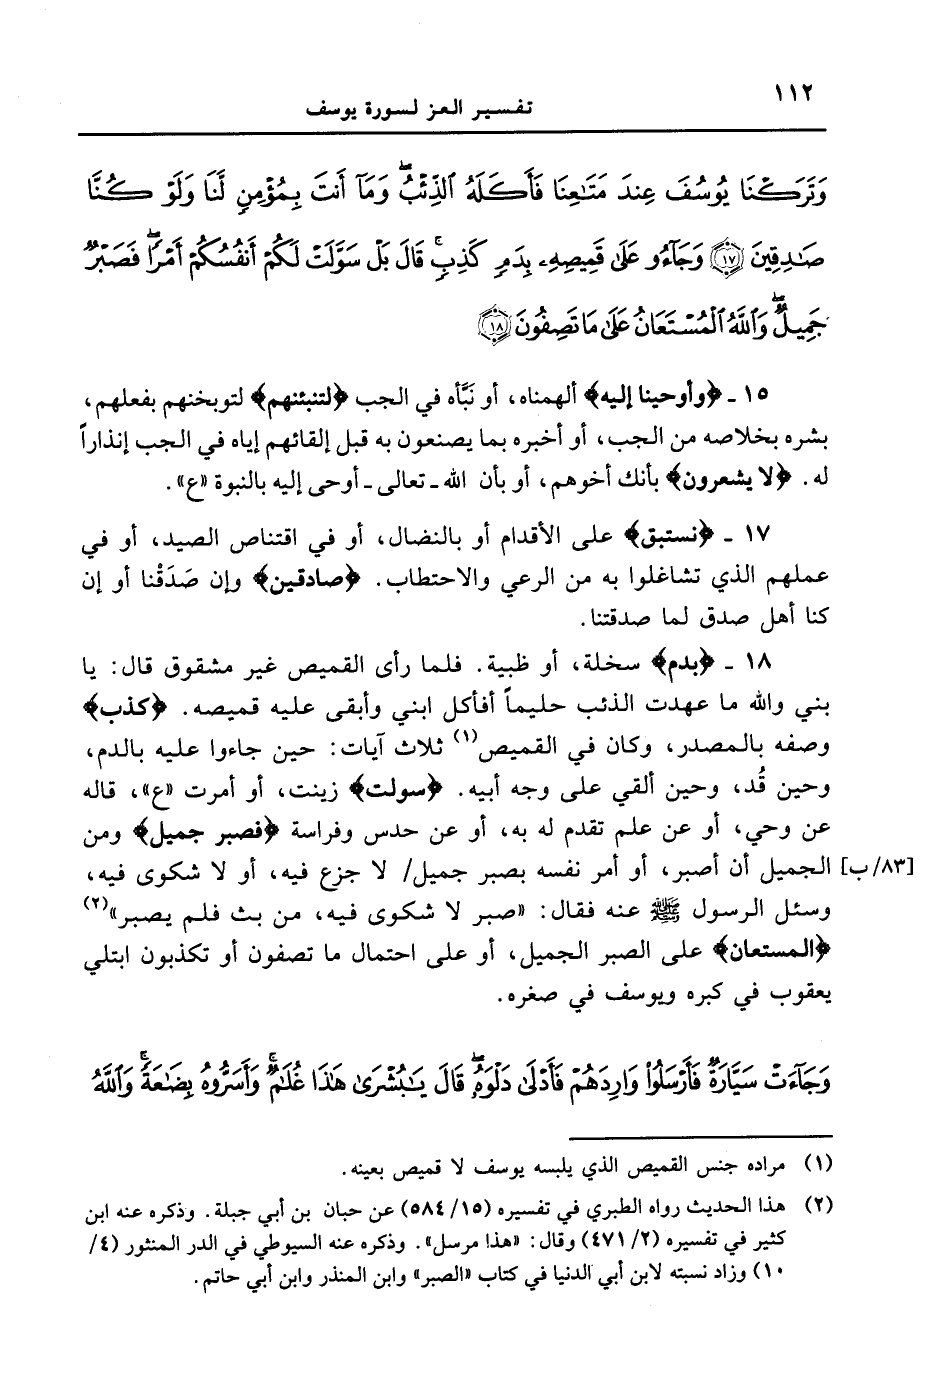 ١١٢
تفسير العز لسورة يوسف
وَتَرَكْنَا يُوسُفَ عِندَ مَتَاعِنَا فَأَكَلَهُ الذِّئْبُ وَمَآ أَنتَ بِمُؤْمِنٍ لَّنَا وَلَوْ كُنَّا
صَادِقِينَ ﴿١٧﴾ وَجَآءُو عَلَىٰ قَمِيصِهِۦ بِدَمٍ كَذِبٍ قَالَ بَلْ سَوَّلَتْ لَكُمْ أَنفُسُكُمْ أَمْرًا فَصَبْرٌ
جَمِيلٌ وَاللَّهُ الْمُسْتَعَانُ عَلَىٰ مَا تَصِفُونَ ﴿١٨﴾
١٥ ـ ﴿وأوحينا إليه﴾ ألهمناه، أو نَبَّأه في الجب ﴿لتنبئنهم﴾ لتوبخنهم بفعلهم،
بشره بخلاصه من الجب، أو أخبره بما يصنعون به قبل إلقائهم إياه في الجب إنذاراً
له. ﴿لا يشعرون﴾ بأنك أخوهم، أو بأن الله ـ تعالى ـ أوحى إليه بالنبوة «ع».
١٧ ـ ﴿نستبق﴾ على الأقدام أو بالنضال، أو في اقتناص الصيد، أو في
عملهم الذي تشاغلوا به من الرعي والاحتطاب. ﴿صادقين﴾ وإن صَدَقْنا أو إن
كنا أهل صدق لما صدقتنا.
١٨ ـ ﴿بدم﴾ سخلة، أو ظبية. فلما رأى القميص غير مشقوق قال: يا
بني والله ما عهدت الذئب حليماً أفأكل ابني وأبقى عليه قميصه. ﴿كذب﴾
وصفه بالمصدر، وكان في القميص(١) ثلاث آيات: حين جاءوا عليه بالدم،
وحين قُد، وحين ألقي على وجه أبيه. ﴿سولت﴾ زينت، أو أمرت «ع»، قاله
عن وحي، أو عن علم تقدم له به، أو عن حدس وفراسة ﴿فصبر جميل﴾ ومن
[٨٣/ب] الجميل أن أصبر، أو أمر نفسه بصبر جميل/ لا جزع فيه، أو لا شكوى فيه،
وسئل الرسول ﷺ عنه فقال: «صبر لا شكوى فيه، من بث فلم يصبر»(٢)
﴿المستعان﴾ على الصبر الجميل، أو على احتمال ما تصفون أو تكذبون ابتلي
يعقوب في كبره ويوسف في صغره.
وَجَآءَتْ سَيَّارَةٌ فَأَرْسَلُوا وَارِدَهُمْ فَأَدْلَىٰ دَلْوَهُ قَالَ يَـٰبُشْرَىٰ هَـٰذَا غُلَـٰمٌ وَأَسَرُّوهُ بِضَـٰعَةً وَاللَّهُ
(١) مراده جنس القميص الذي يلبسه يوسف لا قميص بعينه.
(٢) هذا الحديث رواه الطبري في تفسيره (١٥/ ٥٨٤) عن حبان بن أبي جبلة. وذكره عنه ابن
كثير في تفسيره (٢/ ٤٧١) وقال: «هذا مرسل». وذكره عنه السيوطي في الدر المنثور (٤/
١٠) وزاد نسبته لابن أبي الدنيا في كتاب «الصبر» وابن المنذر وابن أبي حاتم.